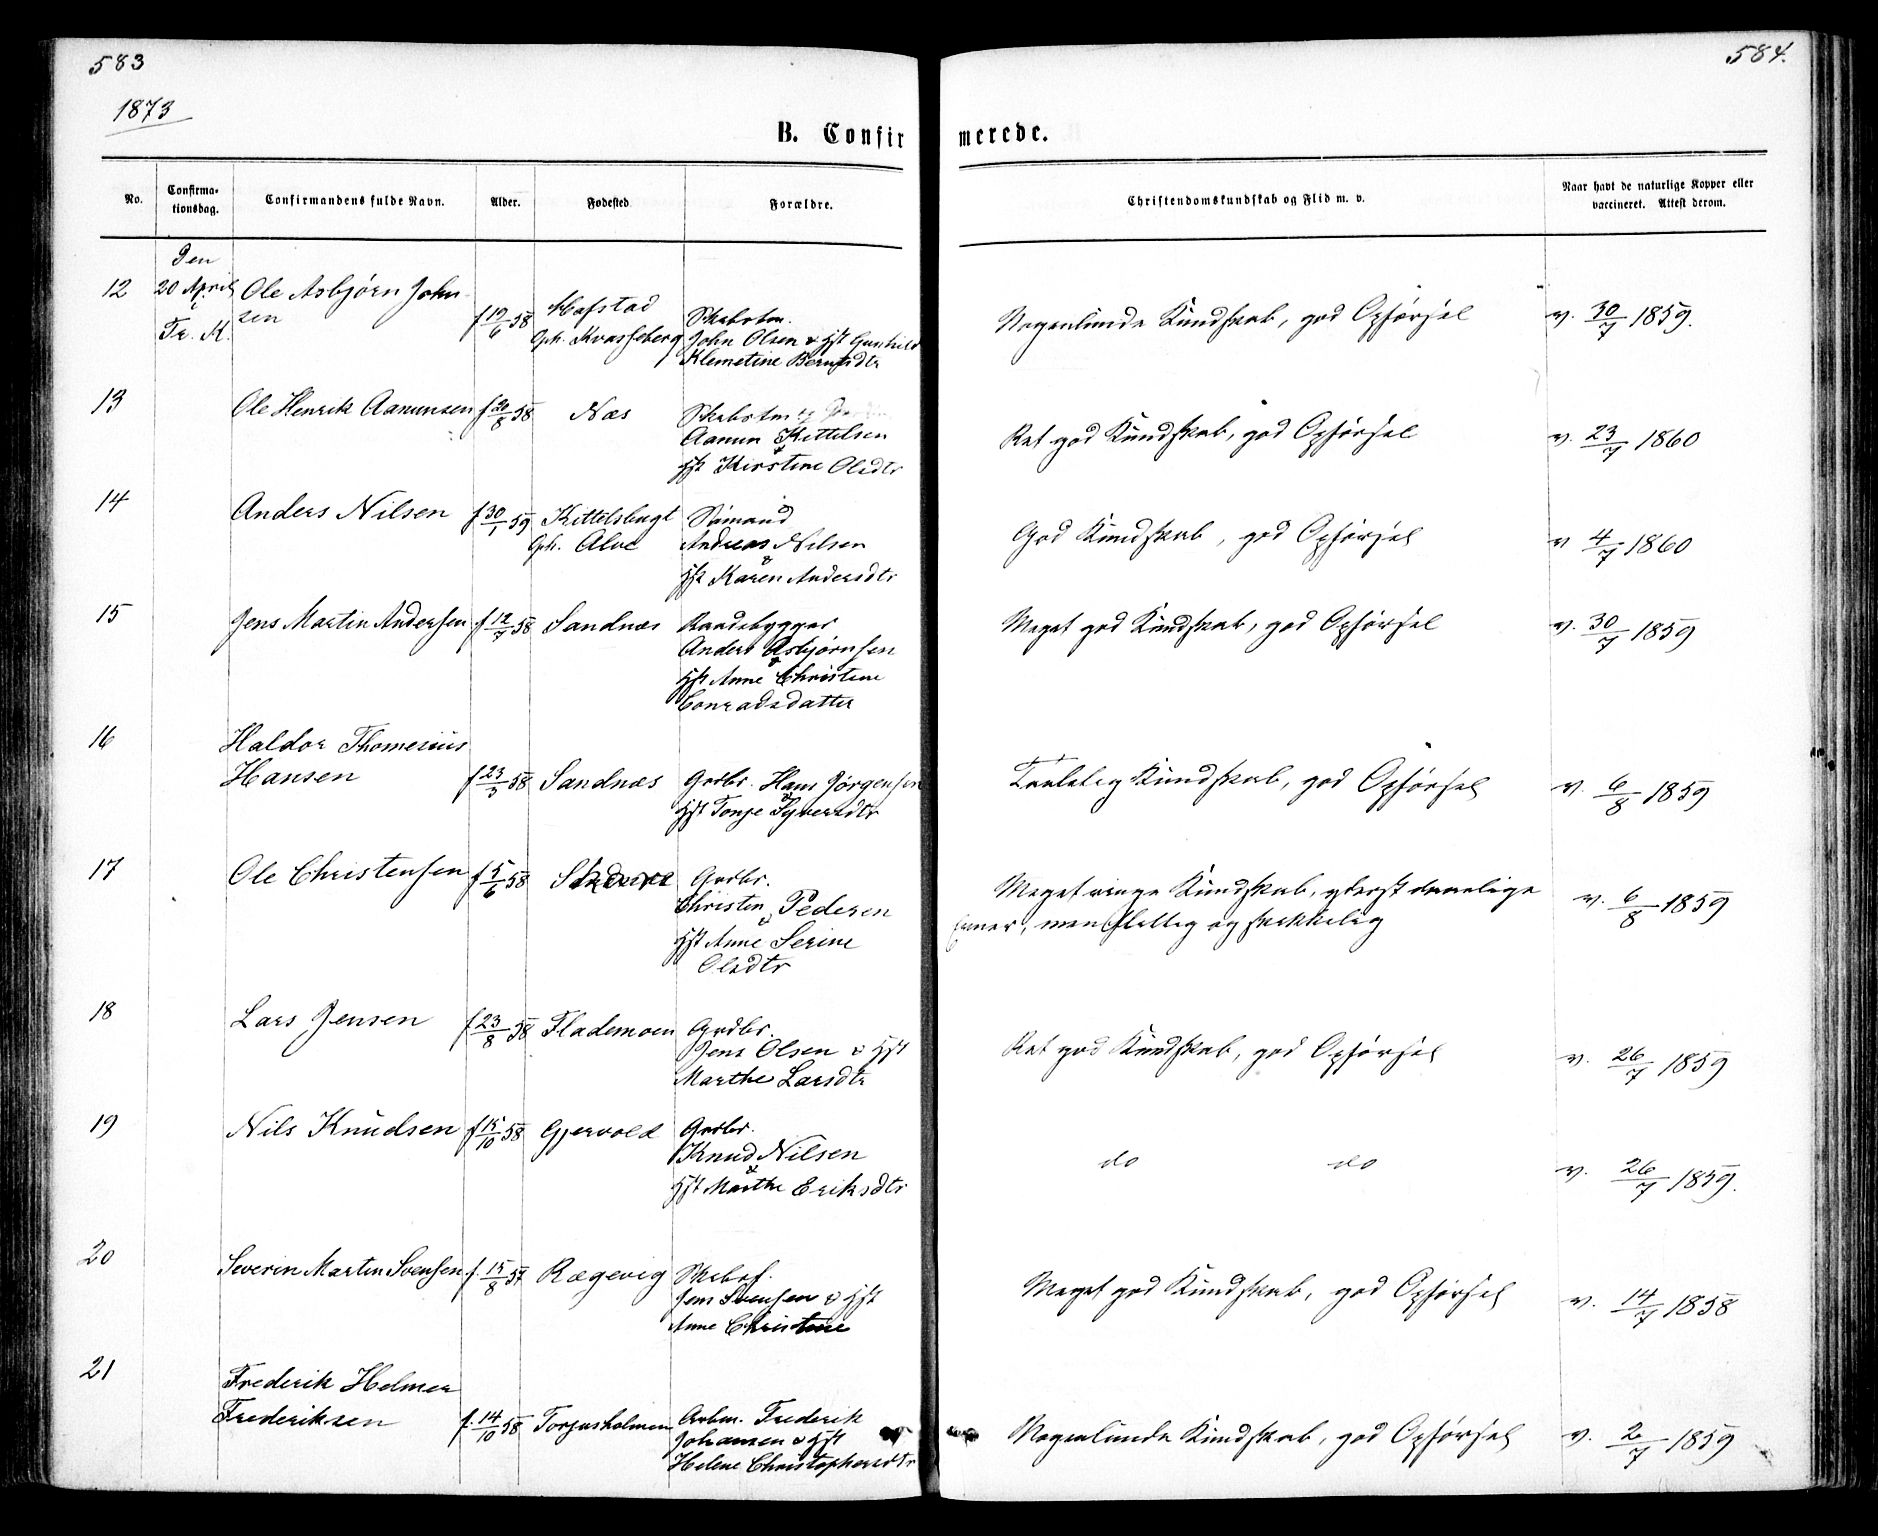 583
584.
1873
B. Confir merede.
No.
Confirma-
tionsdag.
Confirmandens fulde Navn.
Alder.
Fødested
Forældre.
Christendomskundskab og Flid m. v.
Naar havt de naturlige Kopper eller
vaccineret. Attest derom.
Den
12 20 April Ole Asbjørn John-
sen f 19/6 58
Tr. K.
Skibstm.
John Olsen & Hst Gunhild
Klemetine
Nogenlunde Kundskab, god Opførsel v. 30/7 1859.
13 Ole Henrik Aanunsen f 20/8 58 Næs Skibstm
Aanun Kittelsen
&
Hst Kirstine Olsdtr
Ret god Kundskab, god Opførsel v. 23/7 1860
14 Anders Nilsen f 30/1 59 Kittelsbugt Sømand
Oph. Alve Andreas Nilsen
&
Hst Karen Andersdtr
God Kundskab, god Opførsel v 4/7 1860
15 Jens Martin Andersen f 12/7 58 Sandnæs Baadsbygger
Anders Asbjørnsen
&
Hst Anne Christine
Conradsdatter
Meget god Kundskab, god Opførsel v. 30/7 1859
16 Haldor Thomesius
Hansen f 23/5 58 Sandnæs Grdbr. Hans Jørgensen
&
Hst Tonje Syversdtr
Taalelig Kundskab, god Opførsel v. 6/8 1859
17 Ole Christensen f 5/6 58 Grdbr.
Christen Pedersen
&
Hst Anne Serine
Olsdtr
Meget ringe Kundskab, yderst daarlige
Evner, men flittig og skikkelig v. 6/8 1859
18 Lars Jensen f 23/8 58 Flademoen Grdbr.
Jens Olsen & Hst
Marthe Larsdtr
Ret god Kundskab, god Opførsel v. 26/7 1859
19 Nils Knudsen f 15/10 58 Gjervold Grdbr.
Knud Nilsen
&
Hst Marthe Eriksdtr
do do v. 26/7 1859.
20 Severin Martin Svensen f. 15/8 57 Rægevig Skibsf.
Jens Svensen & Hst
Anne Christine
Meget god Kundskab, god Opførsel v. 14/7 1858
21 Frederik Helmer
Frederiksen f. 14/10 58 Torjusholmen Arbm. Frederik
Johansen & Hst
Helene Christophersdtr
Nogenlunde Kundskab, god Opførsel v. 2/7 1859